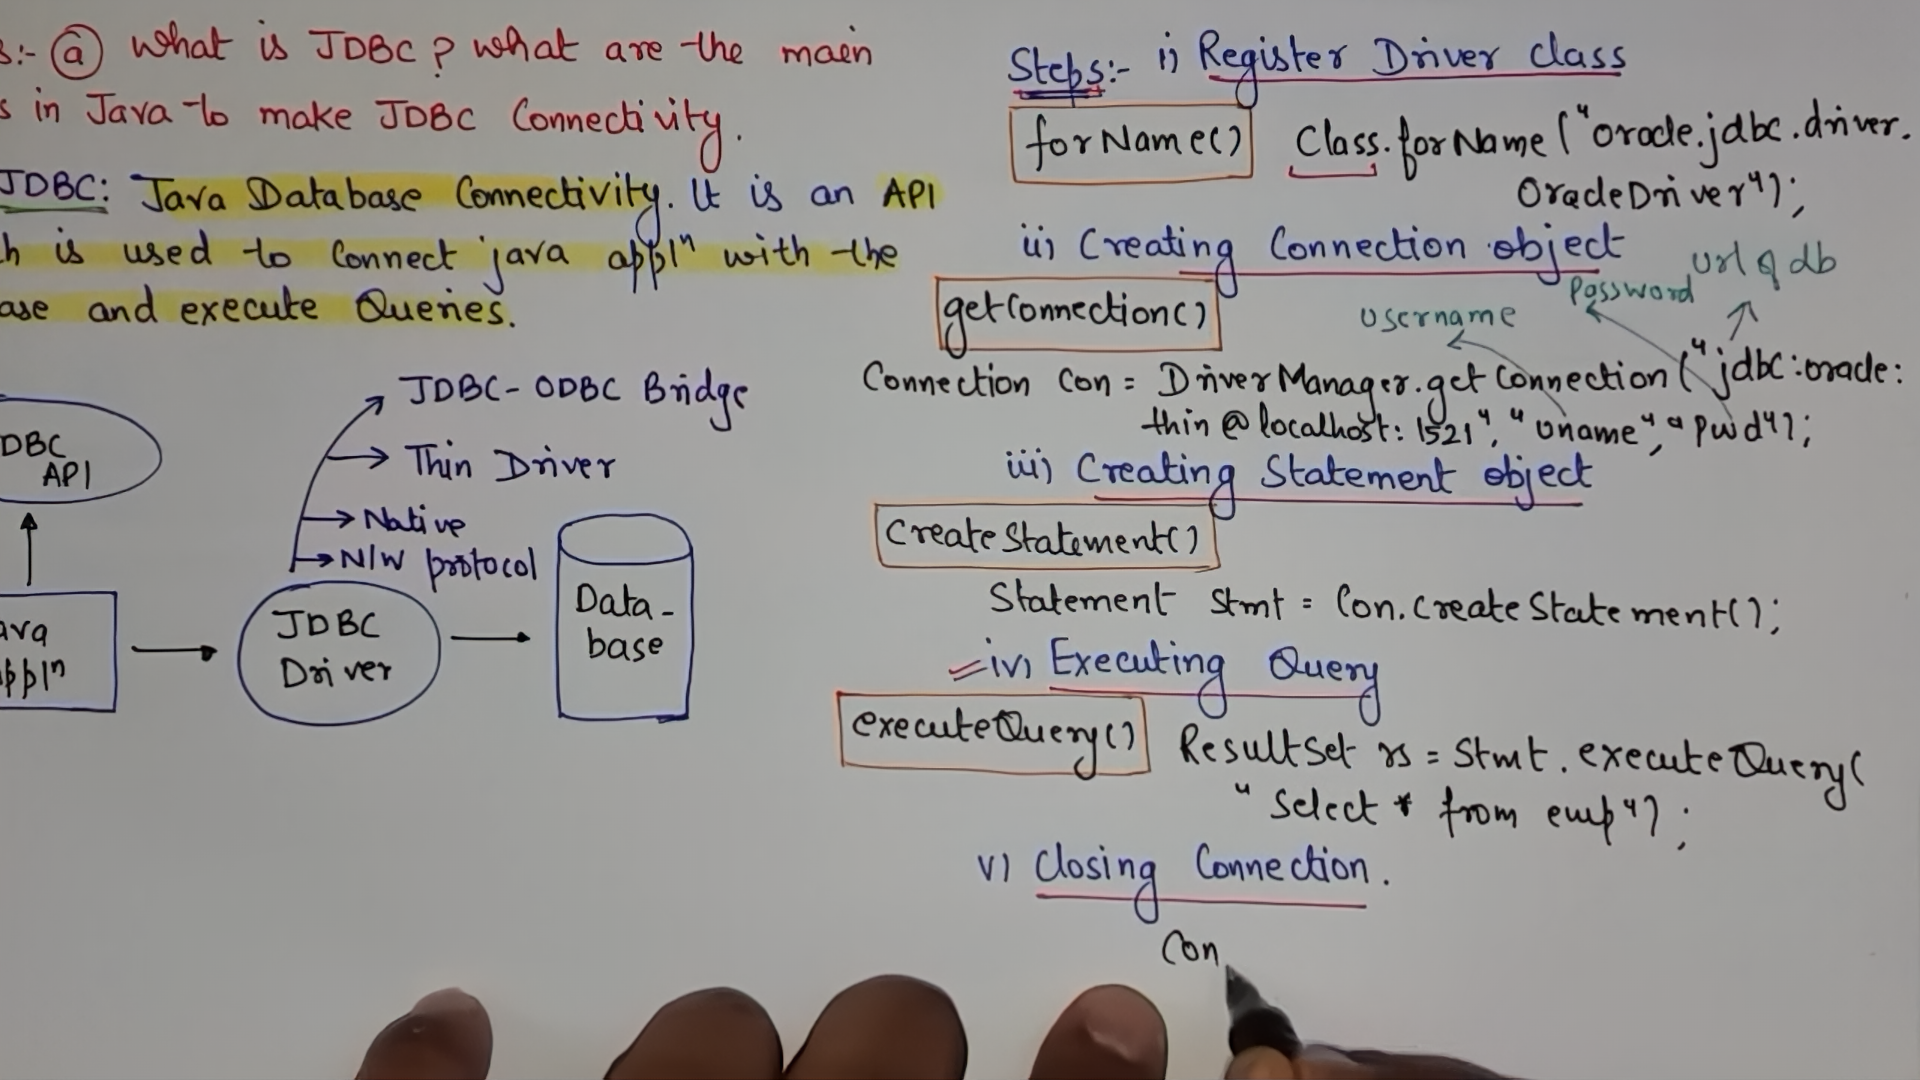 s:- (a) What is JDBC? what are the main
s in Java to make JDBC Connectivity.
JDBC: Java Database Connectivity. It is an API
h is used to Connect java applⁿ with the
ase and execute Queries.
JDBC-ODBC Bridge
Thin Driver
Native
N/W protocol
DBC
API
ava
pplⁿ
JDBC
Driver
Data-
base
Steps:- i) Register Driver class
forName() Class.forName("oracle.jdbc.driver.
OracleDriver");
ii) Creating Connection object
getConnection()
username password url of db
Connection Con = DriverManager.getConnection("jdbc:oracle:
thin@localhost:1521","uname","pwd");
iii) Creating Statement object
CreateStatement()
Statement Stmt = Con.createStatement();
iv) Executing Query
executeQuery() ResultSet rs = Stmt.executeQuery(
"Select * from emp");
v) Closing Connection.
Con